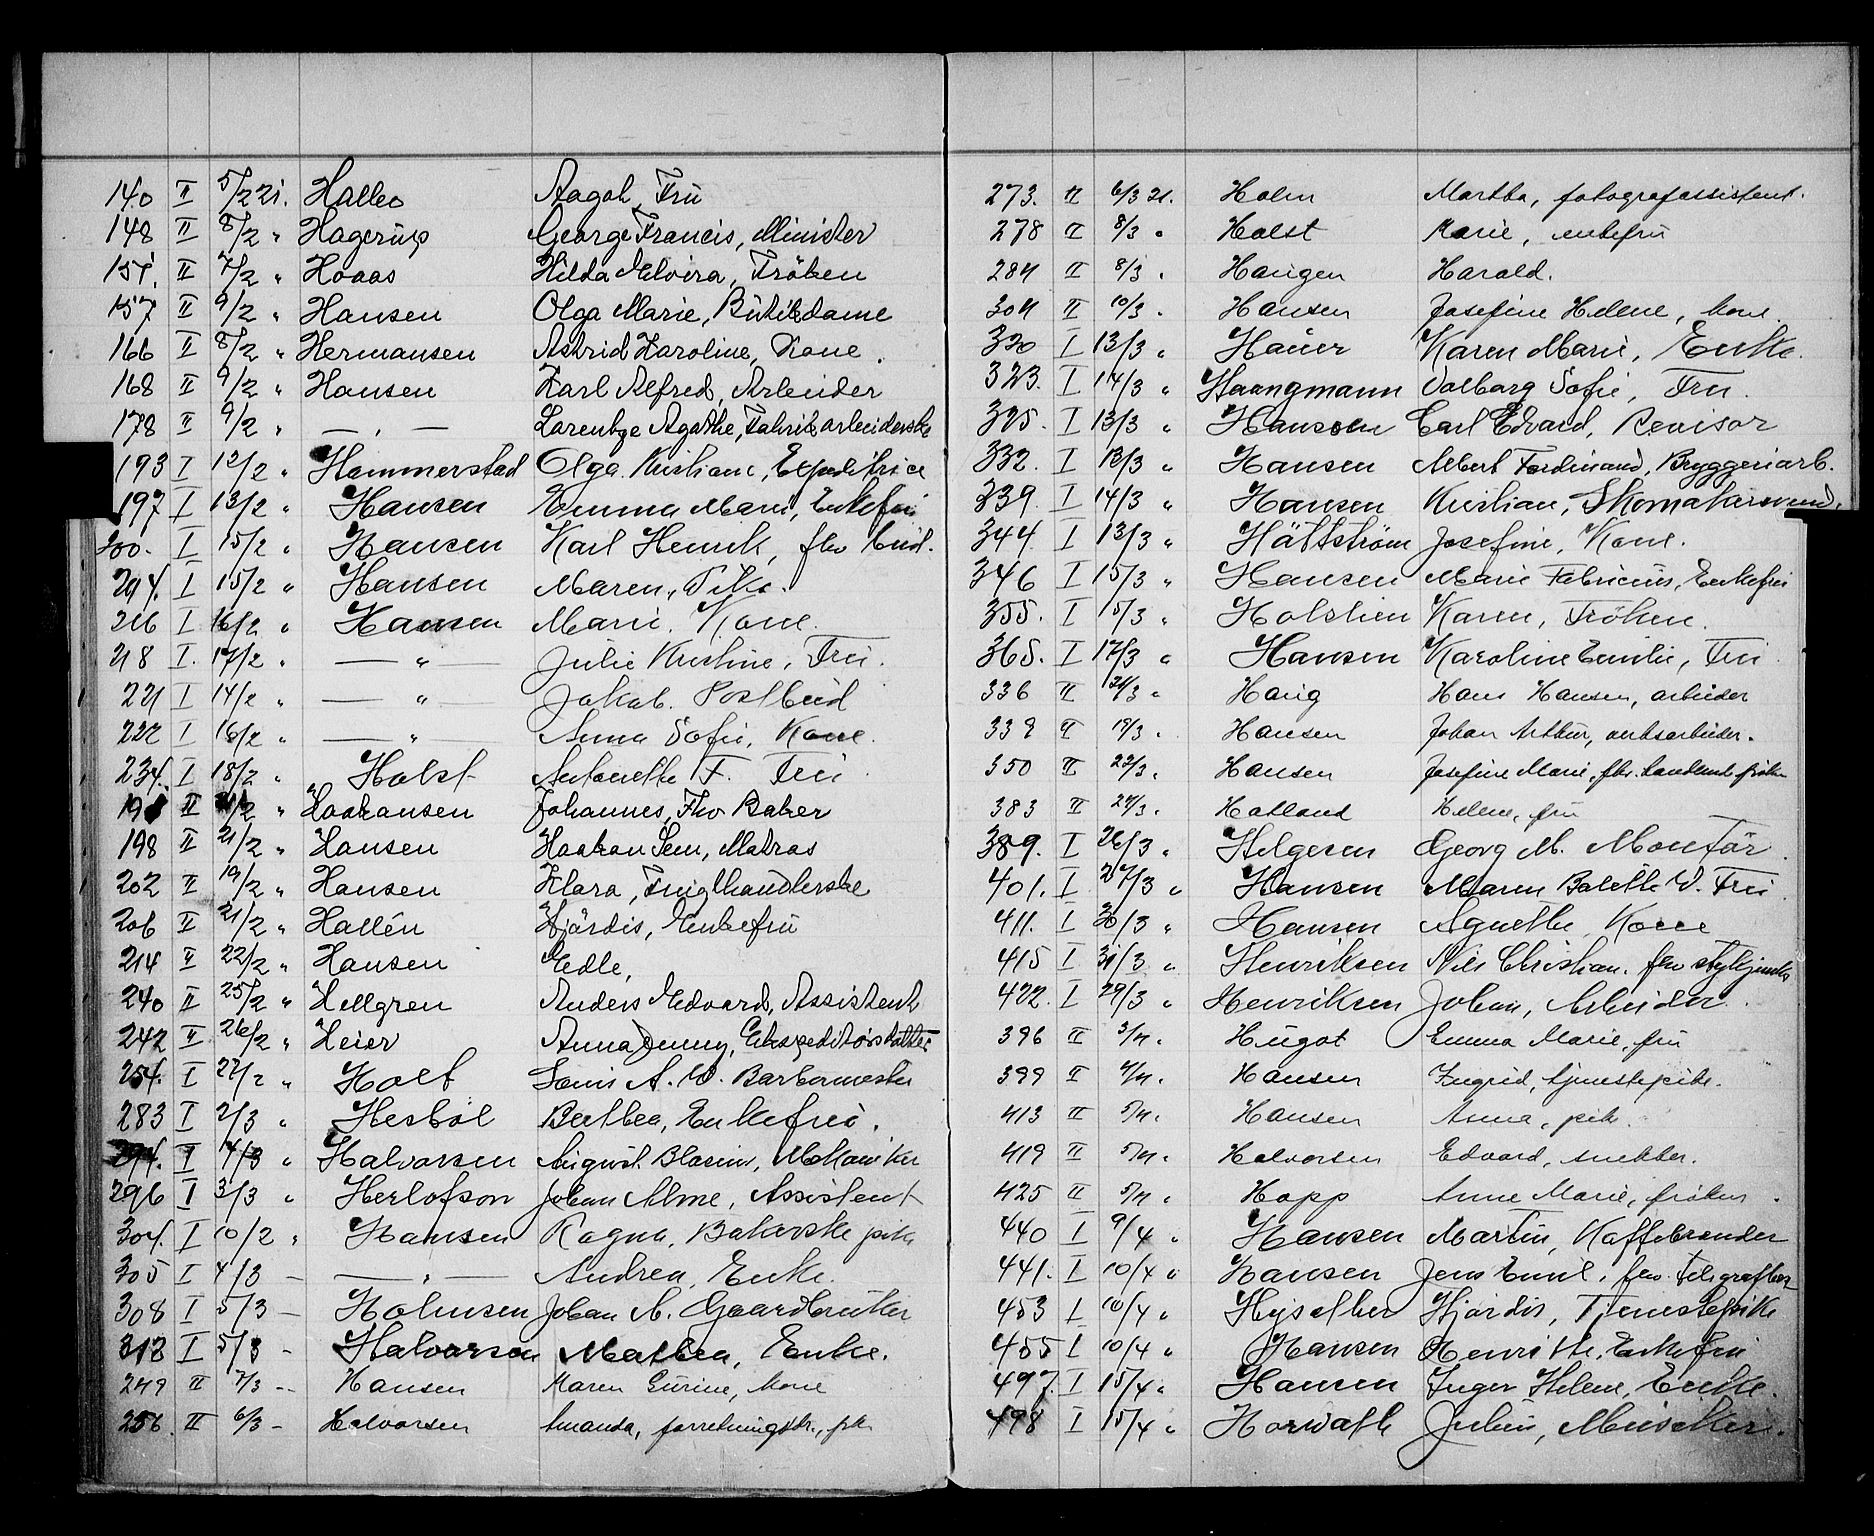 140 II 5/2 21. Halleo Aagot, Frü
148 II 8/2 " Hagerüp George Francis, Minister
151. II 7/2 " Hoaas Hilda Elvira, Fröken
157 II 9/2 " Hansen Olga Marie, Bütikdame
166 II 8/2 " Hermansen Astrid Karoline, Kone.
168 II 9/2 " Hansen Karl Alfred, Arbeider
178 II 9/2 " — " — Larentze Agathe, Fabrikarbeiderske
193 I 12/2 " Hammerstad Olga Kristiane, Expeditrice
197 I 13/2 " Hansen Emma Marie, Enkefrü
200. I 15/2 " Hansen Karl Henrik, fhv. büd.
204. I 15/2 " Hansen Maren, Pike.
216 I 16/2 " Hansen Marie. Kone.
218 I. 17/2 " — " — Julie Kristine, Frü.
221 I 14/2 " — " — Jakob. Postbüd
222 I 16/2 " — " — Anna Sofie, Kone.
234. I 18/2 " Holst Antonette F. Frü
II " Haakansen Johannes, Fhv. Baker
198 II 21/2 " Hansen Haakan Sem, Matros
202 II 19/2 " Hansen Klara,
206 II 21/2 " Hallén Hjördis, Enkefrü
214 II 22/2 " Hansen Edle,
240 II 25/2 " Hellgren Anders Edvard, Assistent
242 II 26/2 " Heier Anna Jenny,
254. I 27/2 " Holt Louis A. W. Barbermester
283 I 2/3 " Hesböl Berthea, Enkefrü.
294. I 4/3 " Halvorsen Aügüst Blasiüs, Mekaniker
296 I 3/3 " Herlofson Johan Alme, Assistent
304. I 10/2 " Hansen Ragna, Bakerske pike
305 I 4/3 — — " — Andrea, Enke.
308 I 5/3 — Holmsen Johan A. Gaardbrüker
313 I 5/3 - Halvorsen Mathea, Enke.
249 II 7/3 - Hansen Maren Eürine, kone
256. II 6/3 - Halvorsen Amanda,
273. II 6/3 21. Holm Martha, fotografassistent.
278 II 8/3 " Holst Marie, enkefrü
284 II 8/3 " Haügen Harald.
304 II 10/3 " Hansen Josefine Helene, kone.
320 I 13/3 " Haüer Karen Marie, Enke.
323. I 14/3 " Haangmann Valborg Sofie, Frü.
325. I 13/3 " Hansen Carl Edvard, Revisor
332. I 13/3 " Hansen Albert Ferdinand, Bryggeriarb.
339. I 14/3 " Hansen Kristian, Skomakersvend.
344. I 13/3 " Hättström Josefine, Kone.
346 I 15/3 " Hansen Marie Fabriciüs, Enkefrü
355. I 15/3 " Holstien Karen, Fröken.
365. I 17/3 " Hansen Karoline Emilie, Frü.
336 II 21/3 " Haüg Hans Hansen, arbeider
339 II 19/3 " Hansen Johan Arthür,
350 II 22/3 " Hansen Josefine Marie, fhv.
383 II 24/3 " Hatland Helene, frü
389. I 26/3 " Helgesen Georg M. Montör.
401. I 27/3 " Hansen Maren Bolette V. Frü
411. I 30/3 " Hansen Agnethe, Kone
415 I 31/3 " Henriksen Nils Christian. fhv
422. I 29/3 " Henriksen Johan, Arbeider.
396 II 3/4 " Hügot Emma Marie, frü
399 II 4/4 " Hansen Ingrid, tjenestepike.
413 II 5/4 " Hansen Anna, pike.
419 II 5/4 " Halvorsen Edvard, snekker.
425 II 5/4 " Hopp Anne Marie, fröken.
440 I 9/4 " Hansen Martin, Kaffebrender
441. I 10/4 " Hansen Jens Emil, fhv.
453 I 10/4 " Hjordis, Tjenestepike
455 I 10/4 " Hansen Henrikke, Enkefrü
497. I 15/4 " Hansen Inger Helene, Enke.
498 I 15/4 " Horwath Juliüs, Müsiker.